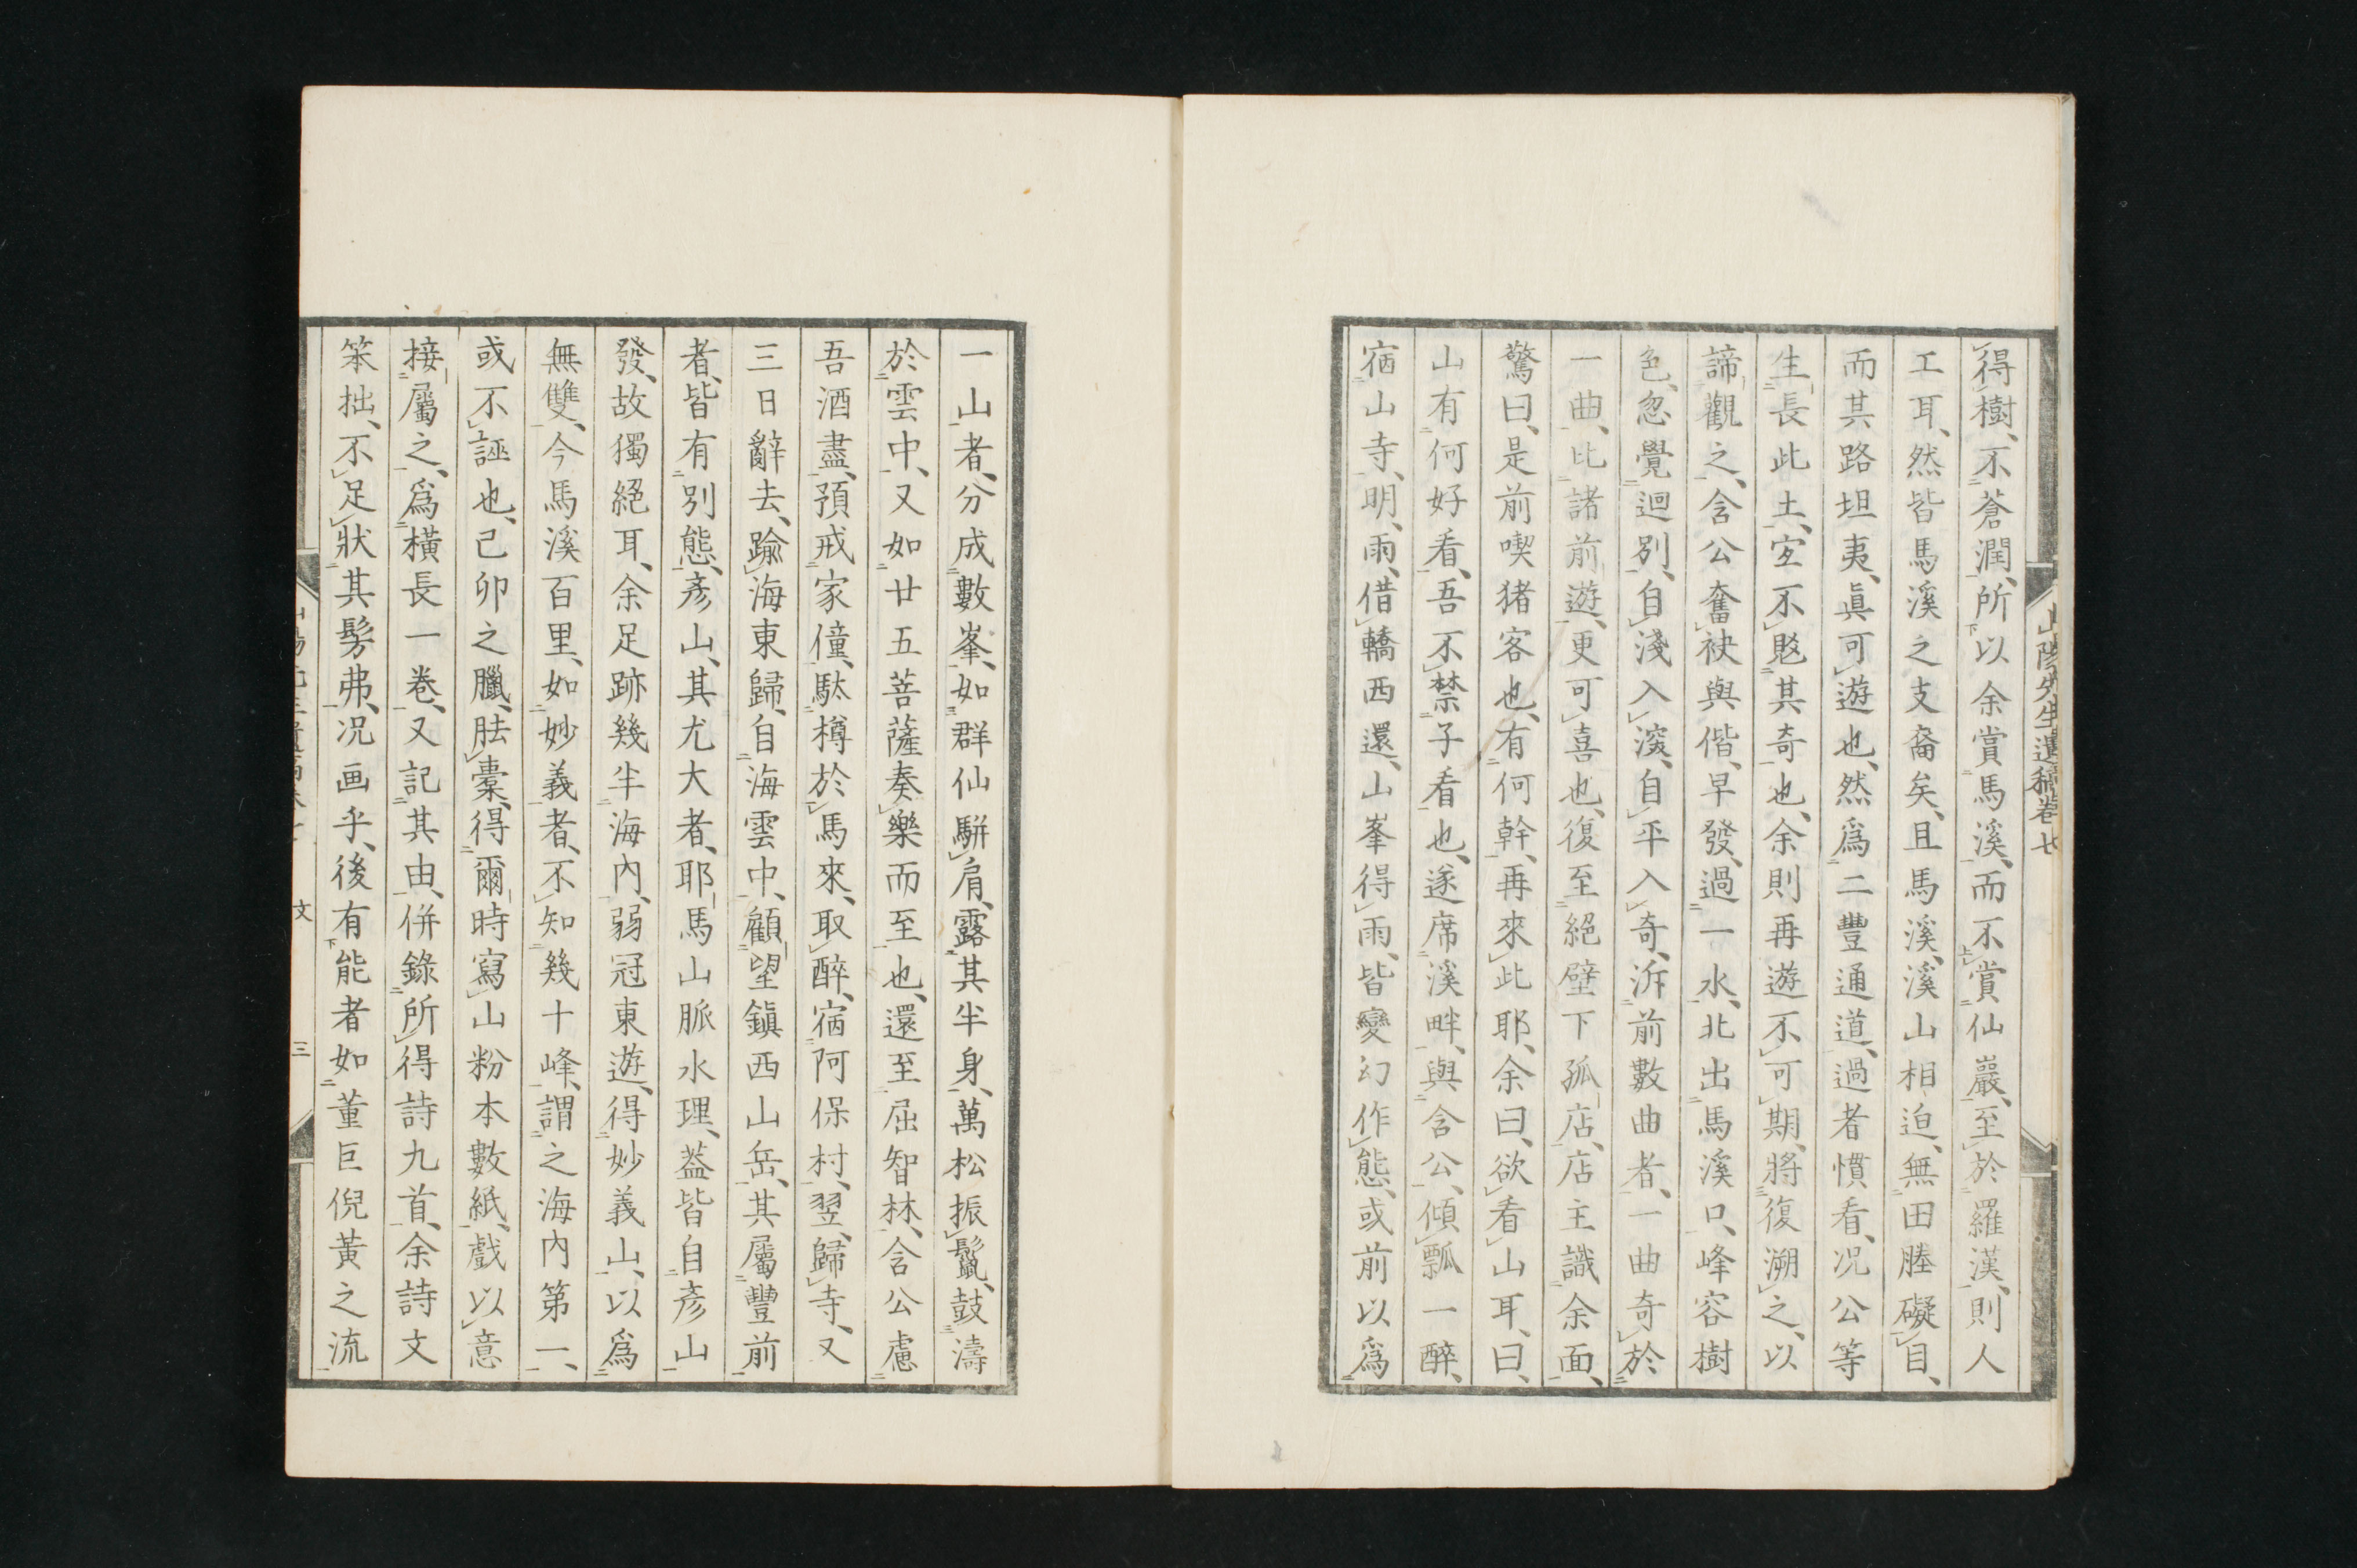 山陽先生遺稿卷七
得樹、不蒼潤、所以余賞馬溪、而不賞仙巖、至於羅漢、則人
工耳、然皆馬溪之支裔矣、且馬溪、溪山相迫、無田塍礙目、
而其路坦夷、眞可遊也、然爲二豐通道、過者慣看、况公等
生長此土、宜不駭其奇也、余則再遊不可期、將復溯之、以
諦觀之、含公奮袂與偕、早發、過一水、北出馬溪口、峰容樹
色、忽覺迥別、自淺入深、自平入奇、泝前數曲者、一曲奇於
一曲、比諸前遊、更可喜也、復至絕壁下孤店、店主識余面、
驚曰、是前喫猪客也、有何幹、再來此耶、余曰、欲看山耳、曰、
山有何好看、吾不禁子看也、遂席溪畔、與含公、傾瓢一醉、
宿山寺、明、雨、借轎西還、山峯得雨、皆變幻作態、或前以爲
一山者、分成數峯、如群仙駢肩、露其半身、萬松振鬣、鼓濤
於雲中、又如廿五菩薩奏樂而至也、還至屈智林、含公慮
吾酒盡、預戒家僮、馱樽於馬來、取醉、宿阿保村、翌、歸寺、又
三日辭去、踰海東歸、自海雲中、顧望鎭西山岳、其屬豐前
者、皆有別態、彥山、其尤大者、耶馬山脈水理、蓋皆自彥山
發、故獨絕耳、余足跡幾半海內、弱冠東遊、得妙義山、以爲
無雙、今馬溪百里、如妙義者、不知幾十峰、謂之海內第一、
或不誣也、己卯之臘、胠橐、得爾時寫山粉本數紙、戲以意
接屬之、爲橫長一卷、又記其由、併錄所得詩九首、余詩文
笨拙、不足狀其髣弗、况画乎、後有能者如董巨倪黃之流
文 三